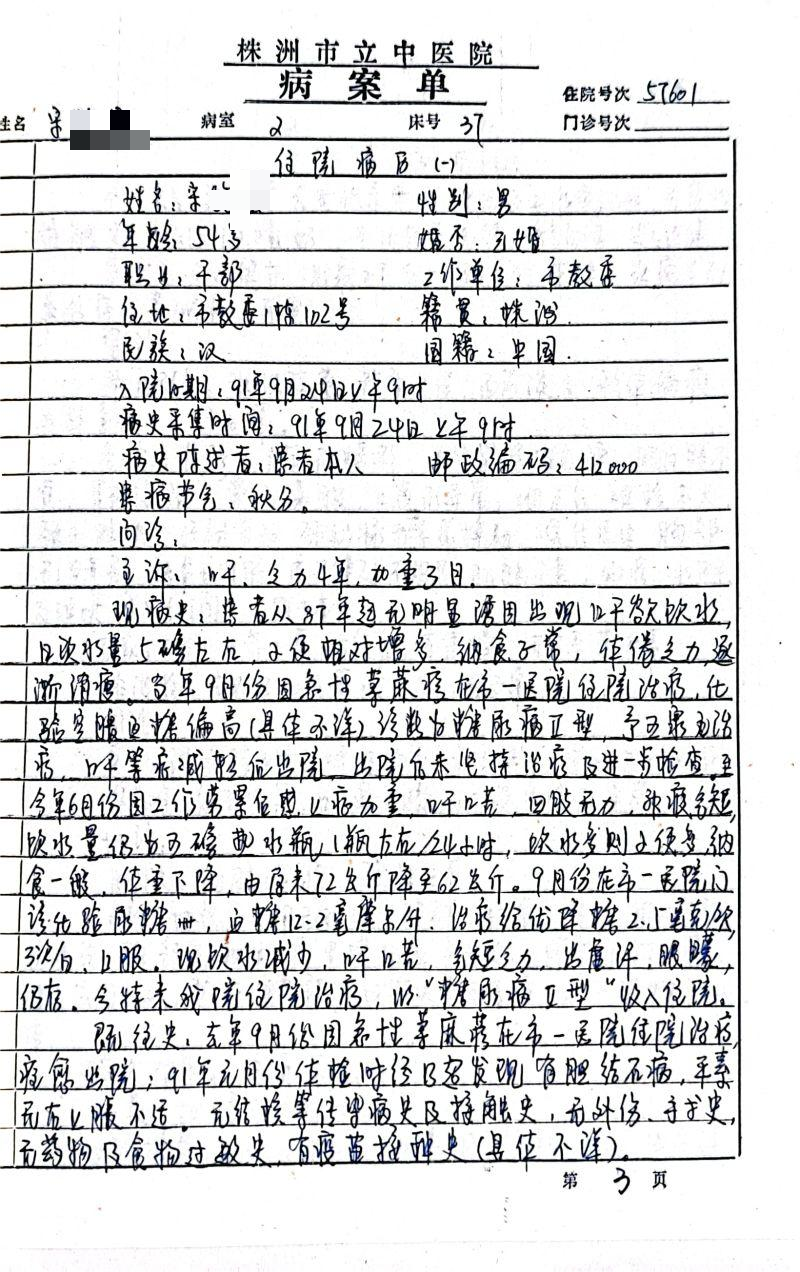 株洲市立中医院
病案单
住院号次 57601
姓名 宋 病室 2 床号 37 门诊号次
住院病历(一)
姓名：宋 性别：男
年龄：54岁 婚否：已婚
职业：干部 工作单位：市教委
住址：市教委1栋102号 籍贯：株洲
民族：汉 国籍：中国
入院日期：91年9月24日上午9时
病史采集时间：91年9月24日上午9时
病史陈述者：患者本人 邮政编码：412000
患病节气：秋分。
问诊：
主诉：口干、乏力4年，加重3月。
现病史：患者从87年起无明显诱因出现口干欲饮水，
日饮水量5磅左右，小便相对增多，纳食正常，体倦乏力，逐
渐消瘦。当年9月份因急性荨麻疹在市一医院住院治疗，化
验空腹血糖偏高(具体不详)诊断为糖尿病Ⅱ型，予 治
疗，口干等症减轻后出院，出院后未坚持治疗及进一步检查。至
今年6月份因工作劳累后感上病加重，口干口苦，四肢无力，神疲气短，
饮水量约为五磅热水瓶1瓶左右/24小时，饮水多则小便多，纳
食一般，体重下降，由原来72公斤降至62公斤。9月份在市一医院门
诊化验尿糖卌，血糖12.2毫摩尔/升。治疗给优降糖2.5毫克/次
3次/日，口服。现饮水减少，口干口苦，气短乏力，出虚汗，眼矇，
仍存。今特来我院住院治疗，以"糖尿病Ⅱ型"收入住院。
既往史：去年9月份因急性荨麻疹在市一医院住院治疗，
症愈出院；91年元月份体检时经B超发现有胆结石病，平素
无右上腹不适。无结核等传染病史及接触史，无外伤、手术史，
无药物及食物过敏史，有疫苗接种史(具体不详)。
第 3 页